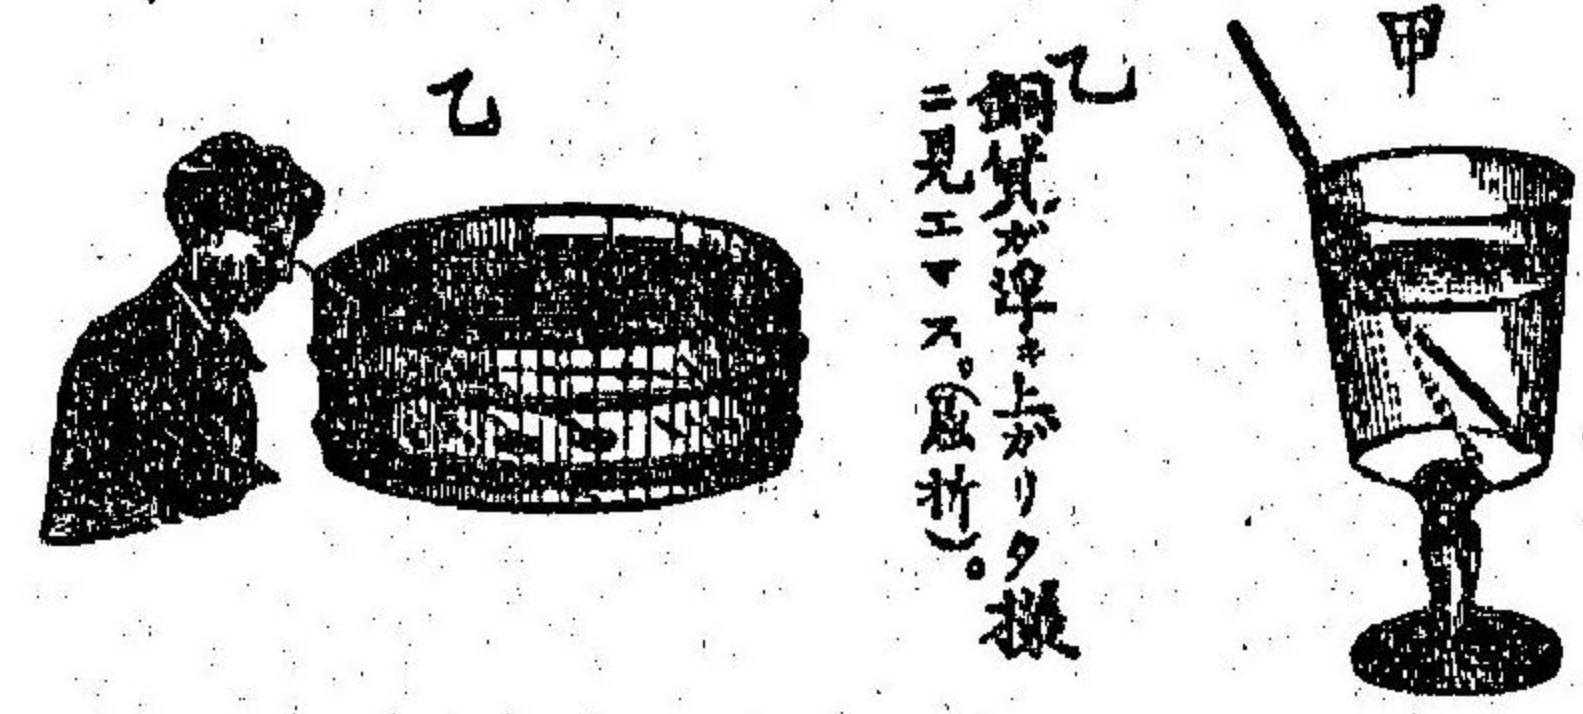 甲
乙
銅貨ガ浮キ上ガリタ様
ニ見エマス。(屈折)。
乙